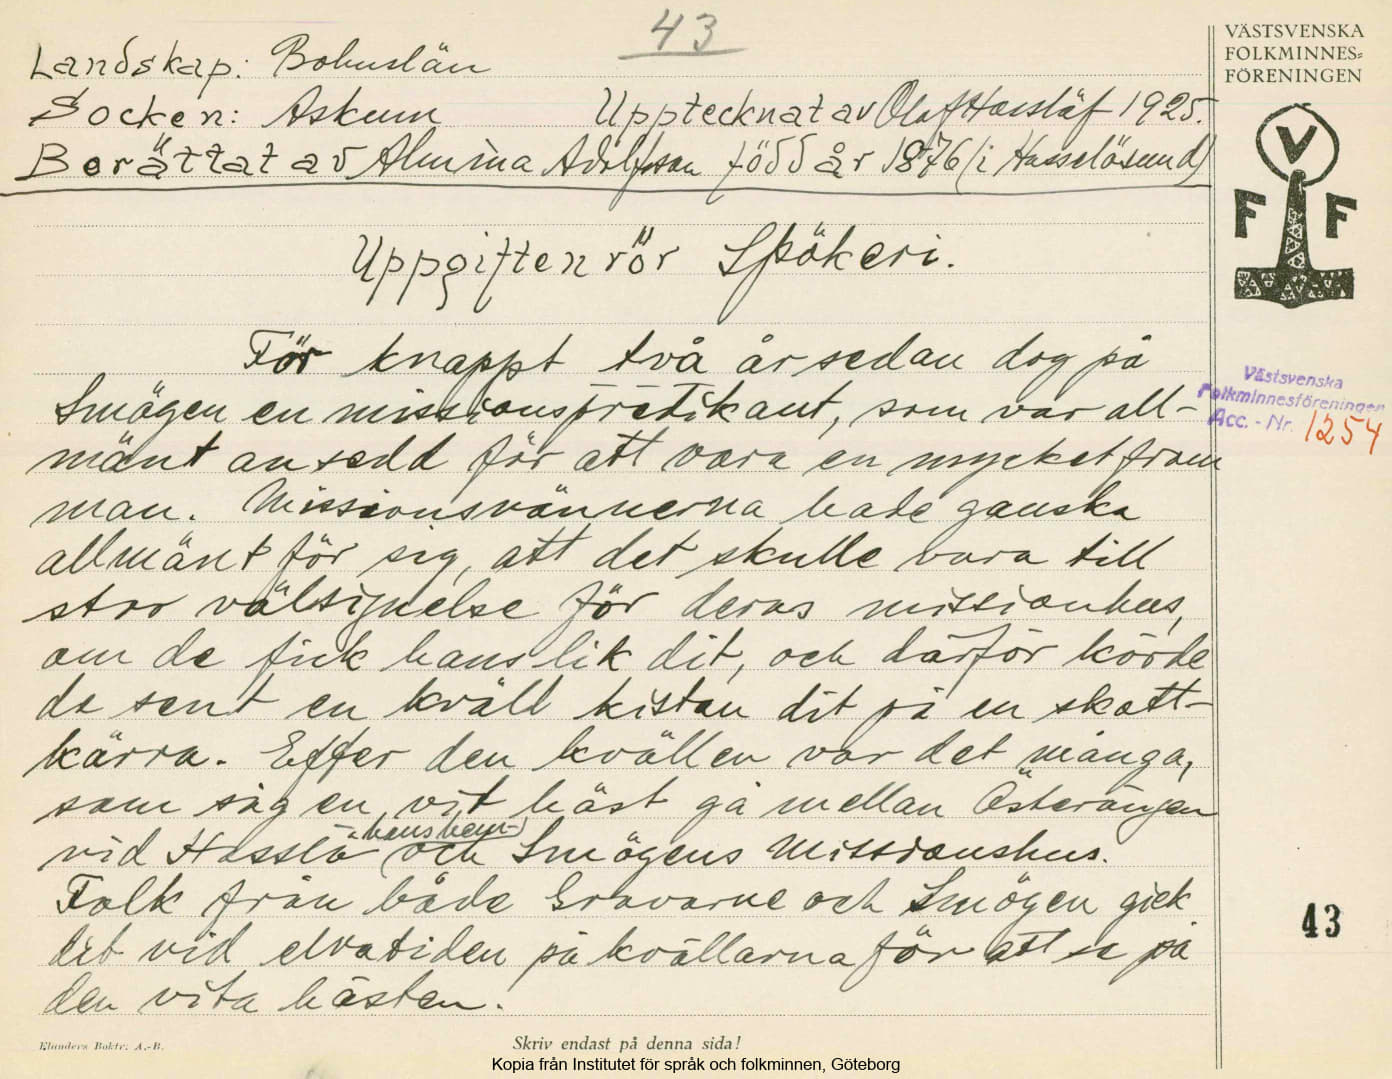 43
Landskap: Bohuslän
Socken: Askum Upptecknat av Olof Hasslöf 1925.
Berättat av Almina Adolfsson född år 1876 (i Hasselösund)
Uppgiften rör Spökeri.
För knappt två år sedan dog på
Smögen en missionspredikant, som var all-
mänt ansedd för att vara en mycket from
man. Missionsvännerna hade ganska
allmänt för sig, att det skulle vara till
stor välsignelse för deras missionhus,
om de fick hans lik dit, och därför körde
de sent en kväll kistan dit på en skott-
kärra. Efter den kvällen var det många,
som såg en vit häst gå mellan Österängen
hans hem
vid Hasslö och Smögens Missionshus.
Folk från både Gravarne och Smögen gick
dit vid elvatiden på kvällarna för att se på
den vita hästen.
VÄSTSVENSKA
FOLKMINNES-
FÖRENINGEN
V
F F
Västsvenska
Folkminnesföreningen
Acc. - Nr. 1254
43
Elanders Boktr. A.-B.
Skriv endast på denna sida!
Kopia från Institutet för språk och folkminnen, Göteborg